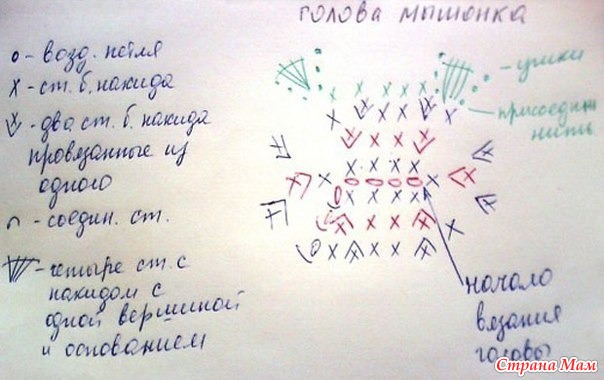 голова мышонка
о - возд. петля
х - ст. б. накида
- два ст. б. накида
провязанные из
одного
- соедин. ст.
- четыре ст. с
накидом с
одной вершиной
и основанием
- ушки
присоединить
нить
начало
вязания
головы
Страна Мам